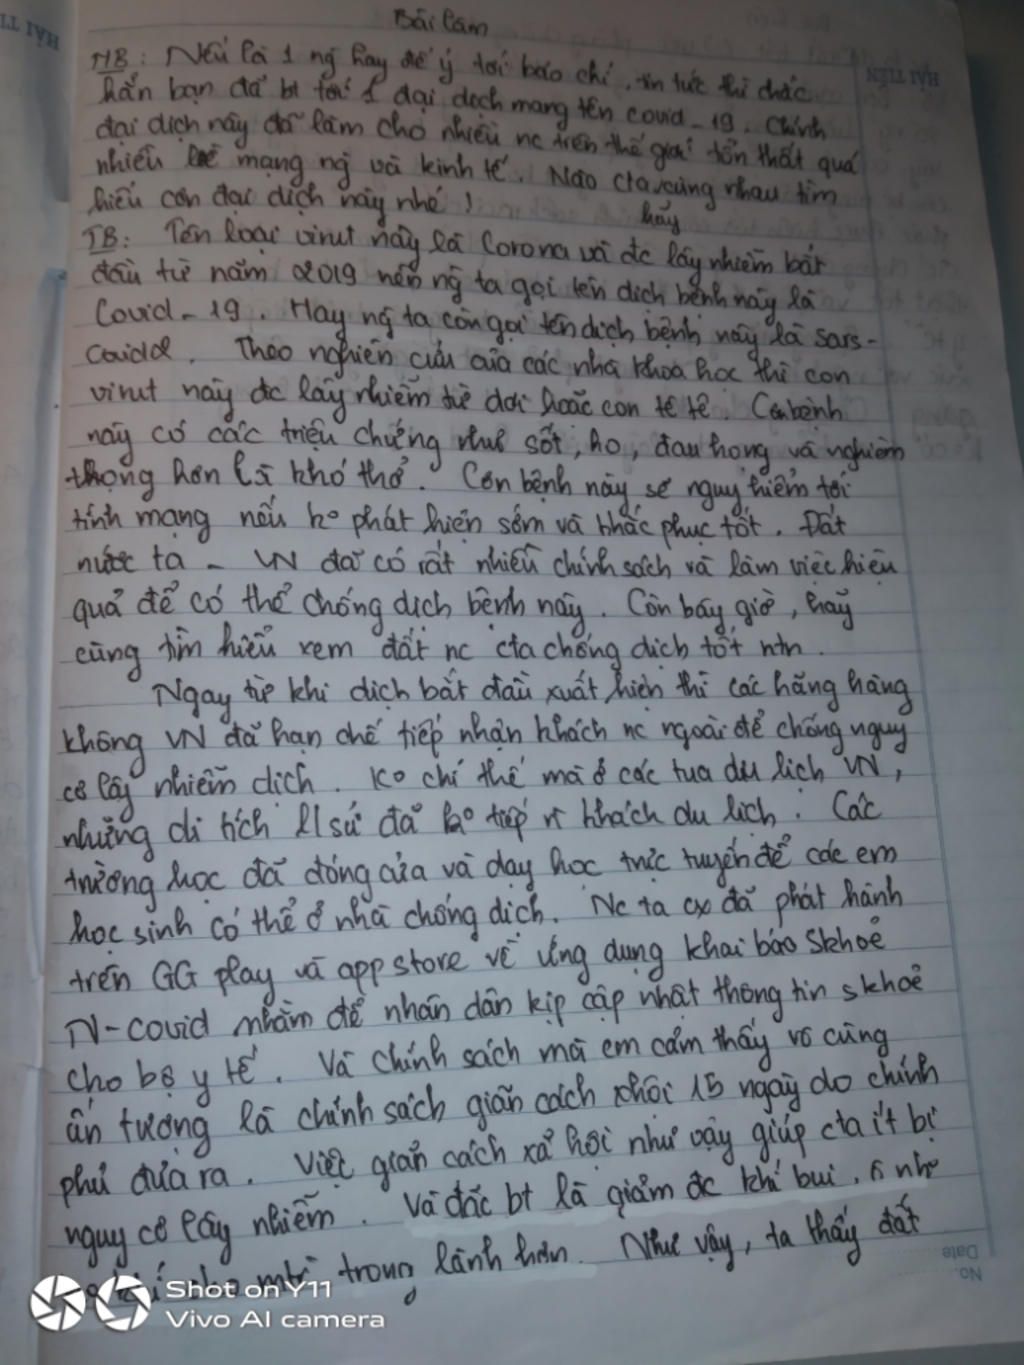 Bài làm
MB: Nếu là 1 ng hay để ý tới báo chí, tin tức thì chắc
hẳn bạn đã bt tới 1 đại dịch mang tên covid-19. Chính
đại dịch này đã làm cho nhiều nc trên thế giới tổn thất quá
nhiều về mạng ng và kinh tế. Nào cta cùng nhau tìm
hãy
hiểu cơn đại dịch này nhé!
TB: Tên loại virut này là Corona và đc lây nhiễm bắt
đầu từ năm 2019 nên ng ta gọi tên dịch bệnh này là
Covid-19. Hay ng ta còn gọi tên dịch bệnh này là sars-
covid2. Theo nghiên cứu của các nhà khoa học thì con
virut này đc lây nhiễm từ dơi hoặc con tê tê. Căn bệnh
này có các triệu chứng như sốt, ho, đau họng và nghiêm
trọng hơn là khó thở. Cơn bệnh này sẽ nguy hiểm tới
tính mạng nếu ko phát hiện sớm và khắc phục tốt. Đất
nước ta - VN đã có rất nhiều chính sách và làm việc hiệu
quả để có thể chống dịch bệnh này. Còn bây giờ, hãy
cùng tìm hiểu xem đất nc cta chống dịch tốt ntn.
Ngay từ khi dịch bắt đầu xuất hiện thì các hãng hàng
không VN đã hạn chế tiếp nhận khách nc ngoài để chống nguy
cơ lây nhiễm dịch. Ko chỉ thế mà ở các tua du lịch VN,
những di tích lsử đã ko tiếp khách du lịch. Các
trường học đã đóng cửa và dạy học trực tuyến để các em
học sinh có thể ở nhà chống dịch. Nc ta cx đã phát hành
trên GG play và app store về ứng dụng khai báo skhoẻ
N-covid nhằm để nhân dân kịp cập nhật thông tin skhoẻ
cho bộ y tế. Và chính sách mà em cảm thấy vô cùng
ấn tượng là chính sách giãn cách xhội 15 ngày do chính
phủ đưa ra. Việc giãn cách xã hội như vậy giúp cta ít bị
nguy cơ lây nhiễm. Và đặc bt là giảm đc khí bụi, ô nh
cho mtr trong lành hơn. Như vậy, ta thấy đất
HẢI TIẾN
HẢI TI
No....
Date
Shot on Y11
Vivo AI camera